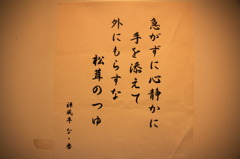 急がずに心静かに
手を添えて
外にもらすな
松茸のつゆ